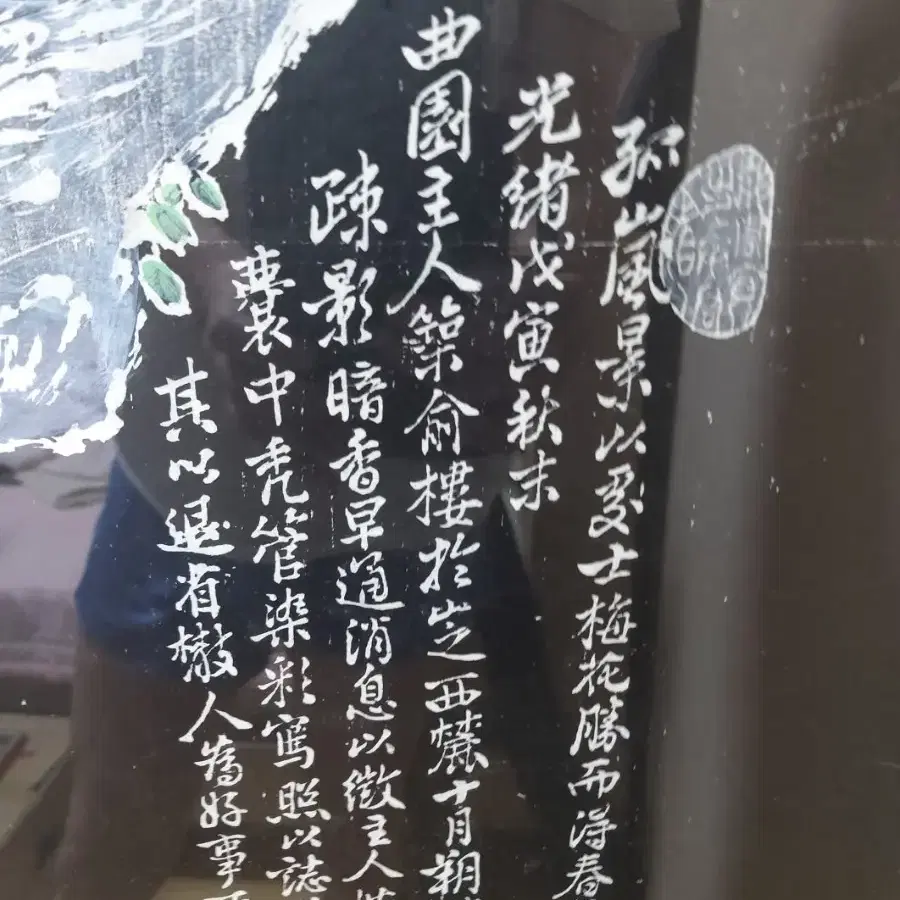 孤嵐景以處士梅花勝而得春
光緒戊寅秋末
曲園主人築俞樓於山之西麓十月朔
疎影暗香早通消息以徵主人
囊中禿管染彩寫照以誌
其以退省散人為好事